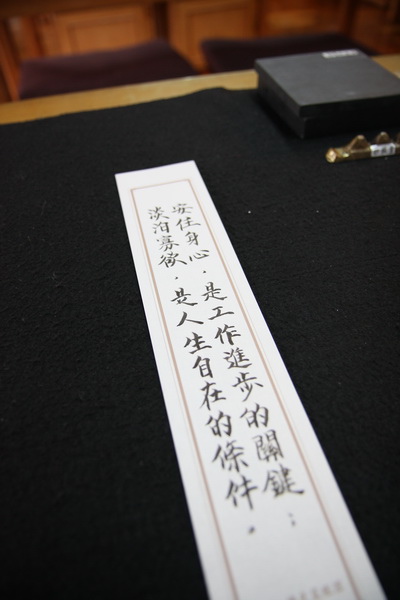 安住身心，是工作進步的關鍵；
淡泊寡欲，是人生自在的條件。